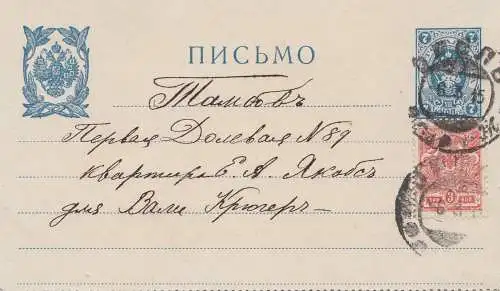 ПИСЬМО
7 7
7 7
Тамбовъ
Первая Долевая № 89
квартира Е. А. Якобсъ
для Вали Крюгеръ
3